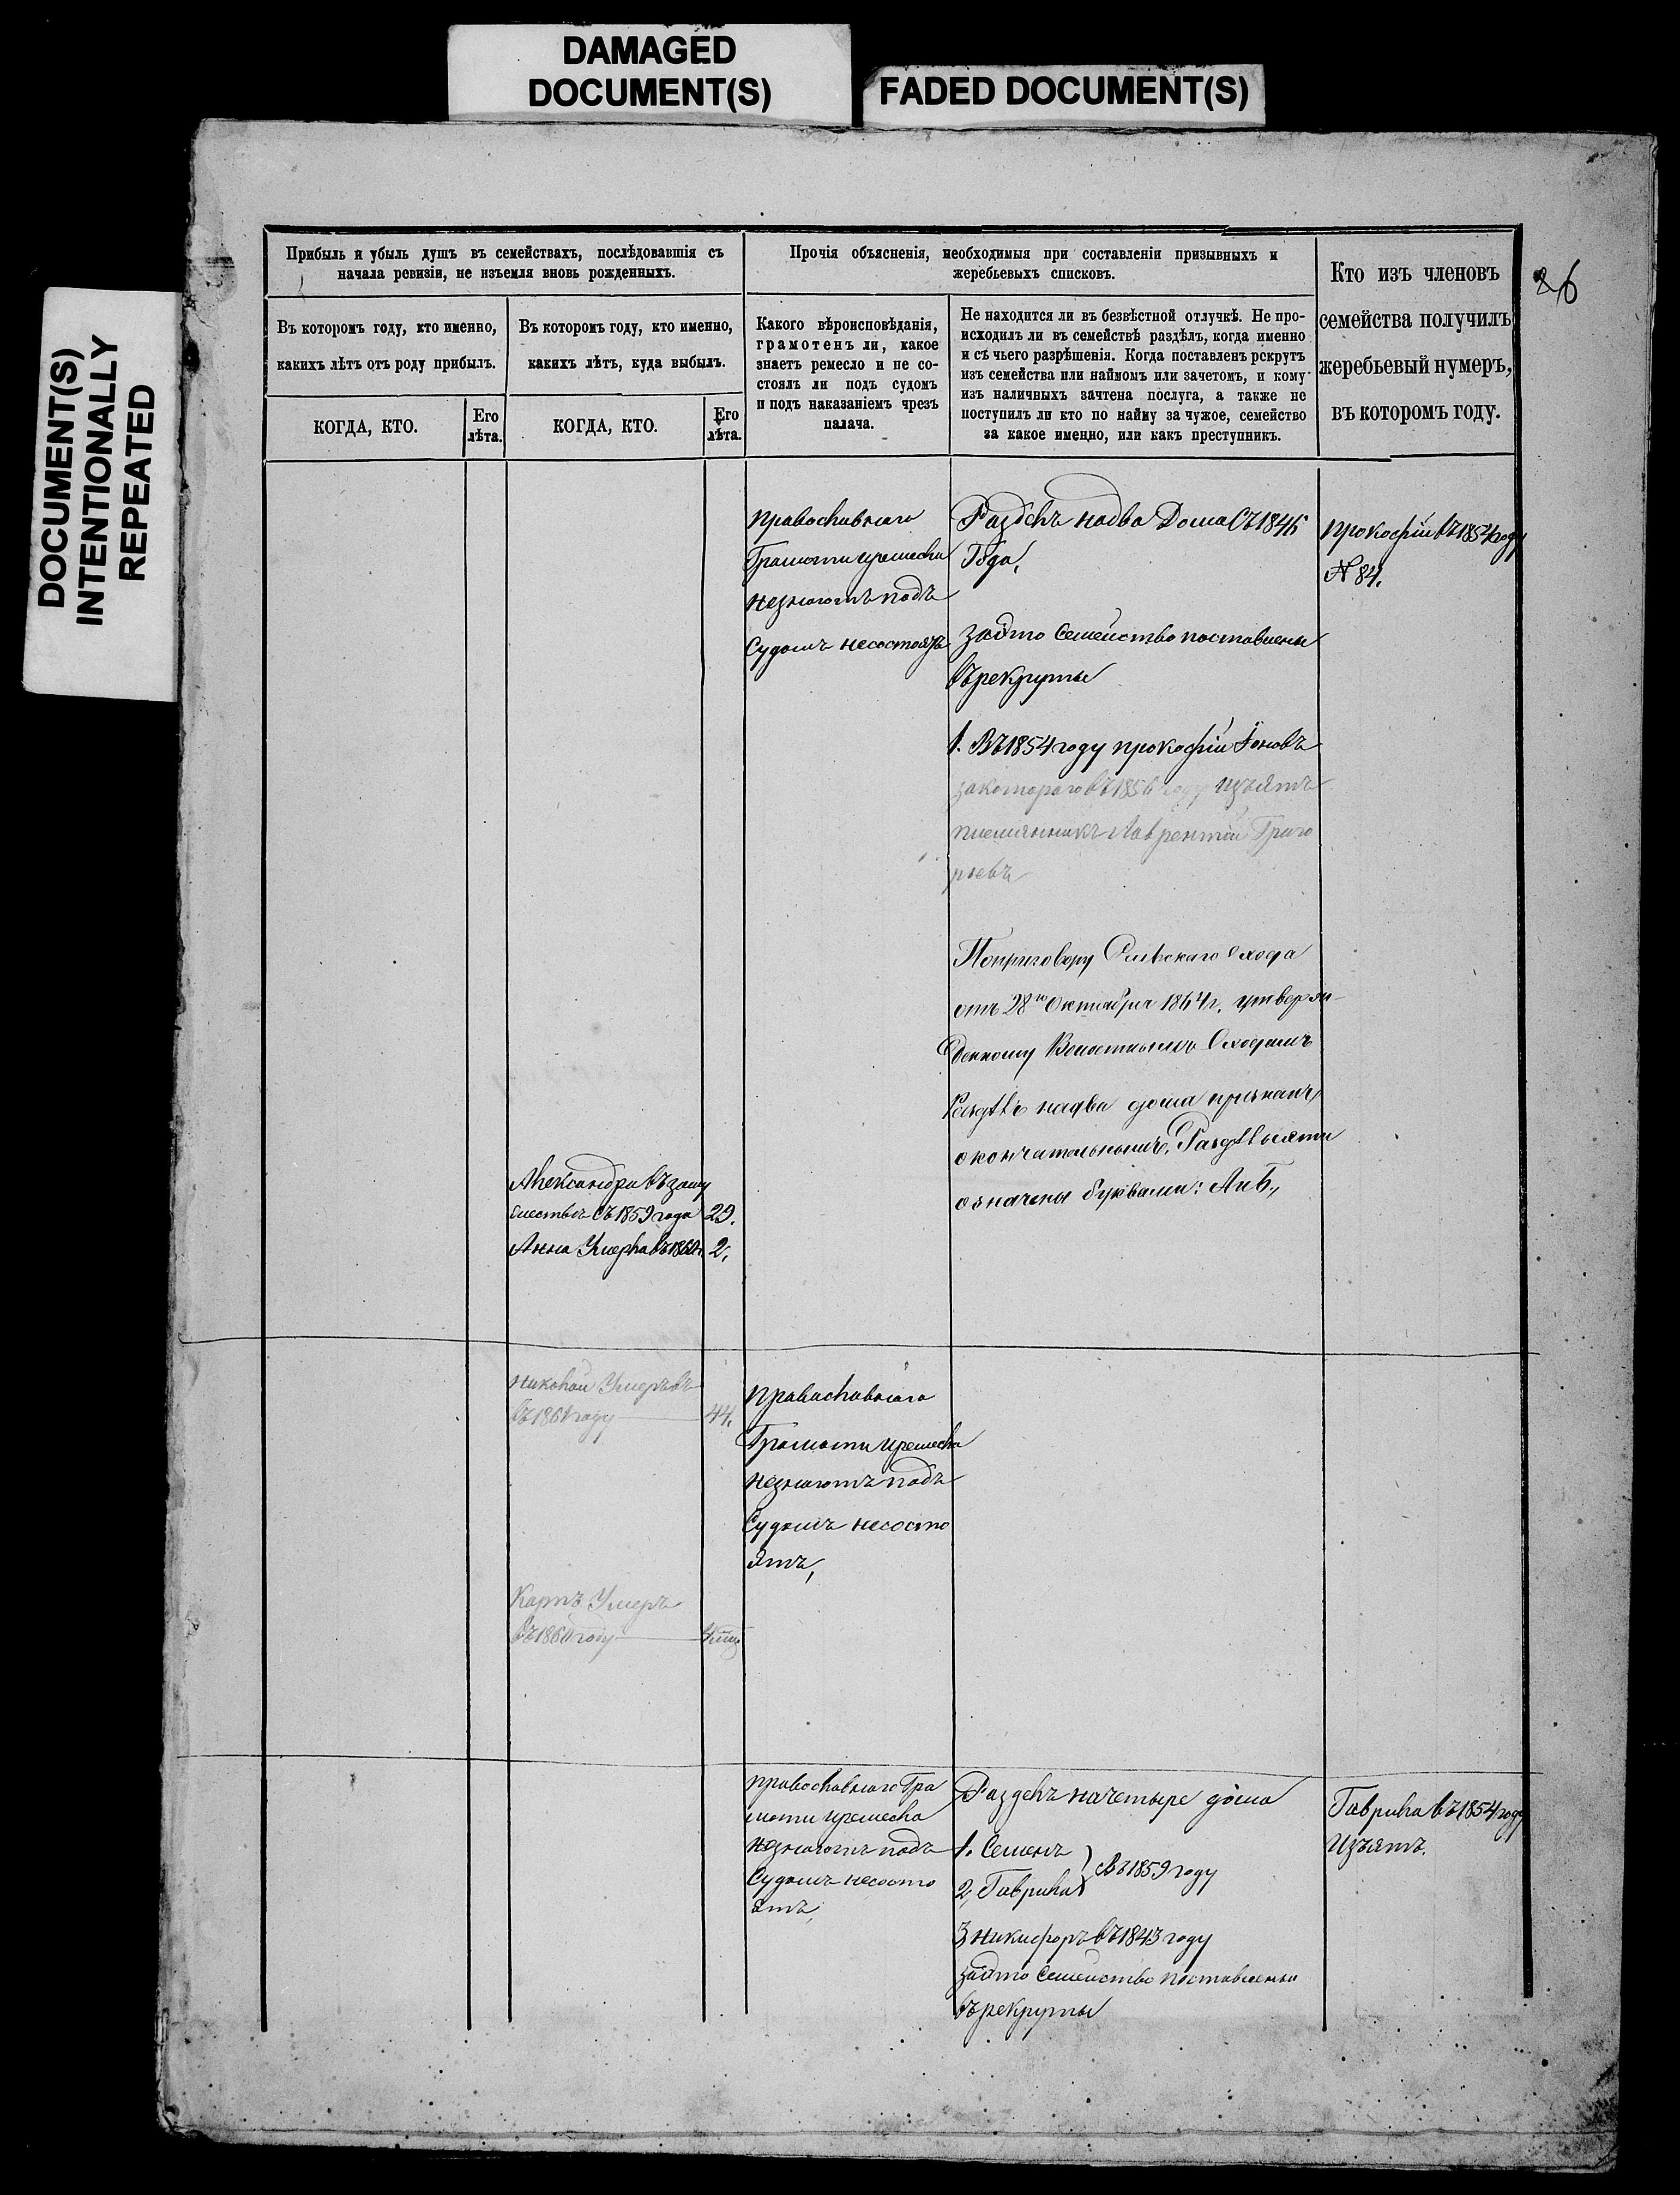 DAMAGED
DOCUMENT(S)
FADED DOCUMENT(S)
DOCUMENT(S)
INTENTIONALLY
REPEATED
26
Прибыль и убыль душъ въ семействахъ, послѣдовавшія съ
начала ревизіи, не изъемля вновь рожденныхъ.
Въ которомъ году, кто именно,
какихъ лѣтъ отъ роду прибылъ.
КОГДА, КТО.
Его
лѣта.
Въ которомъ году, кто именно,
какихъ лѣтъ, куда выбылъ.
КОГДА, КТО.
Его
лѣта.
Прочія объясненія, необходимыя при составленіи призывныхъ и
жеребьевыхъ списковъ.
Какого вѣроисповѣданія,
грамотенъ ли, какое
знаетъ ремесло и не со-
стоялъ ли подъ судомъ
и подъ наказаніемъ чрезъ
палача.
Не находится ли въ безвѣстной отлучкѣ. Не про-
исходилъ ли въ семействѣ раздѣлъ, когда именно
и съ чьего разрѣшенія. Когда поставленъ рекрутъ
изъ семейства или наймомъ или зачетомъ, и кому
изъ наличныхъ зачтена послуга, а также не
поступилъ ли кто по найму за чужое, семейство
за какое именно, или какъ преступникъ.
Кто изъ членовъ
семейства получилъ
жеребьевый нумеръ,
въ которомъ году.
православнаго
Грамоти иремесла
незнаютъ подъ
Судомъ несостоятъ
Разделъ надва Дома Съ 1846
Года,
заэто Семейство поставлены
въ рекруты
1. Въ 1854 году прокофій Іоновъ
закотораго въ 1856 году изъятъ
племянникъ Лаврентій Григо
рьевъ
Поприговору Сельскаго Схода
отъ 28го Октября 1864 г. утверж-
денному Волостнымъ Сходомъ
Раздѣлъ надва дома признанъ
окончательнымъ, Раздѣлы эти
означены буквами: А и Б.,
прокофій въ 1854 году
№ 84.
Александра въ заму
жествѣ Съ 1859 года 29.
Анна Умерла въ 1860 г. 2,
Николай Умеръ
въ 1861 году 44.
Карпъ Умеръ
въ 1860 году
православнаго
Грамоти иремесла
незнаютъ подъ
Судомъ несосто
ятъ,
православнаго Гра
моти иремесла
незнаютъ подъ
Судомъ несосто
ятъ,
Разделъ начетыре дома
1. Семенъ
2, Гаврила
Въ 1859 году
3, Никифоръ въ 1843 году
заэто Семейство поставлены
въ рекруты
Гаврила въ 1854 году
изъятъ.